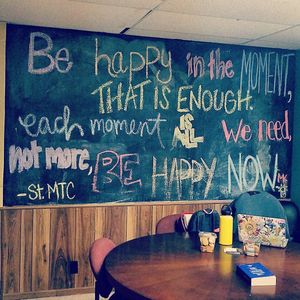 Be happy in the MOMENT,
THAT IS ENOUGH.
each moment IS ALL we need,
not more, BE HAPPY NOW
- St. MTC